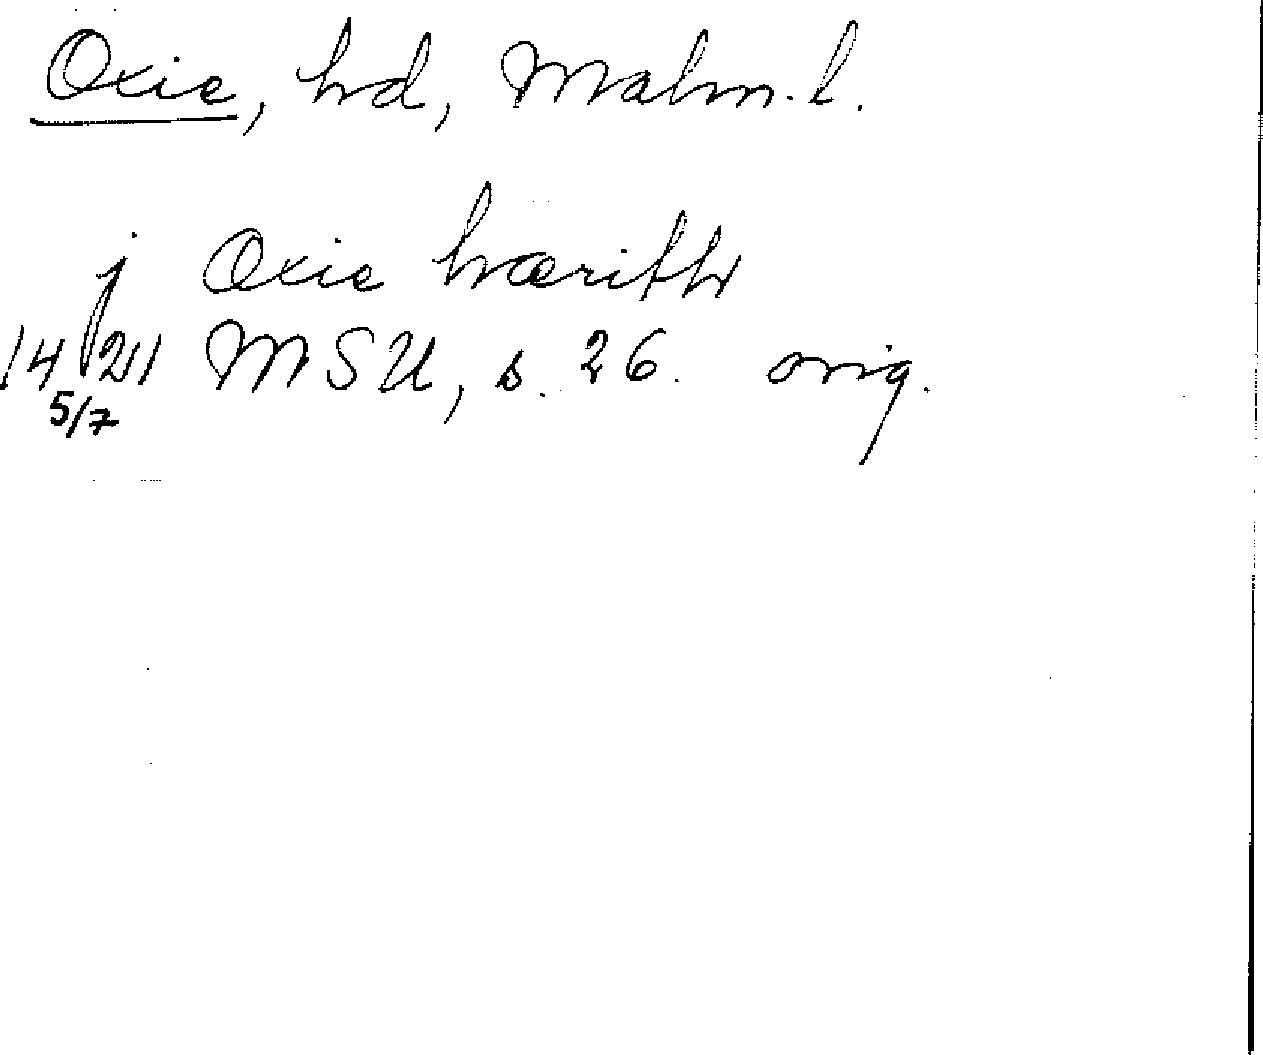 Oxie, hd, Malm. l.
j Oxie hærith
1421 MSU, s. 26. orig.
5/7